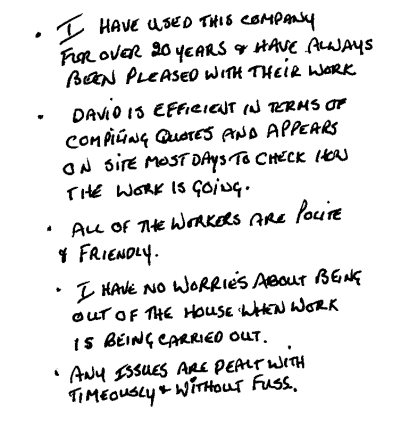 • I HAVE USED THIS COMPANY
FOR OVER 20 YEARS & HAVE ALWAYS
BEEN PLEASED WITH THEIR WORK
• DAVID IS EFFICIENT IN TERMS OF
COMPILING QUOTES AND APPEARS
ON SITE MOST DAYS TO CHECK HOW
THE WORK IS GOING.
• ALL OF THE WORKERS ARE POLITE
& FRIENDLY.
• I HAVE NO WORRIES ABOUT BEING
OUT OF THE HOUSE WHEN WORK
IS BEING CARRIED OUT.
• ANY ISSUES ARE DEALT WITH
TIMEOUSLY & WITHOUT FUSS.